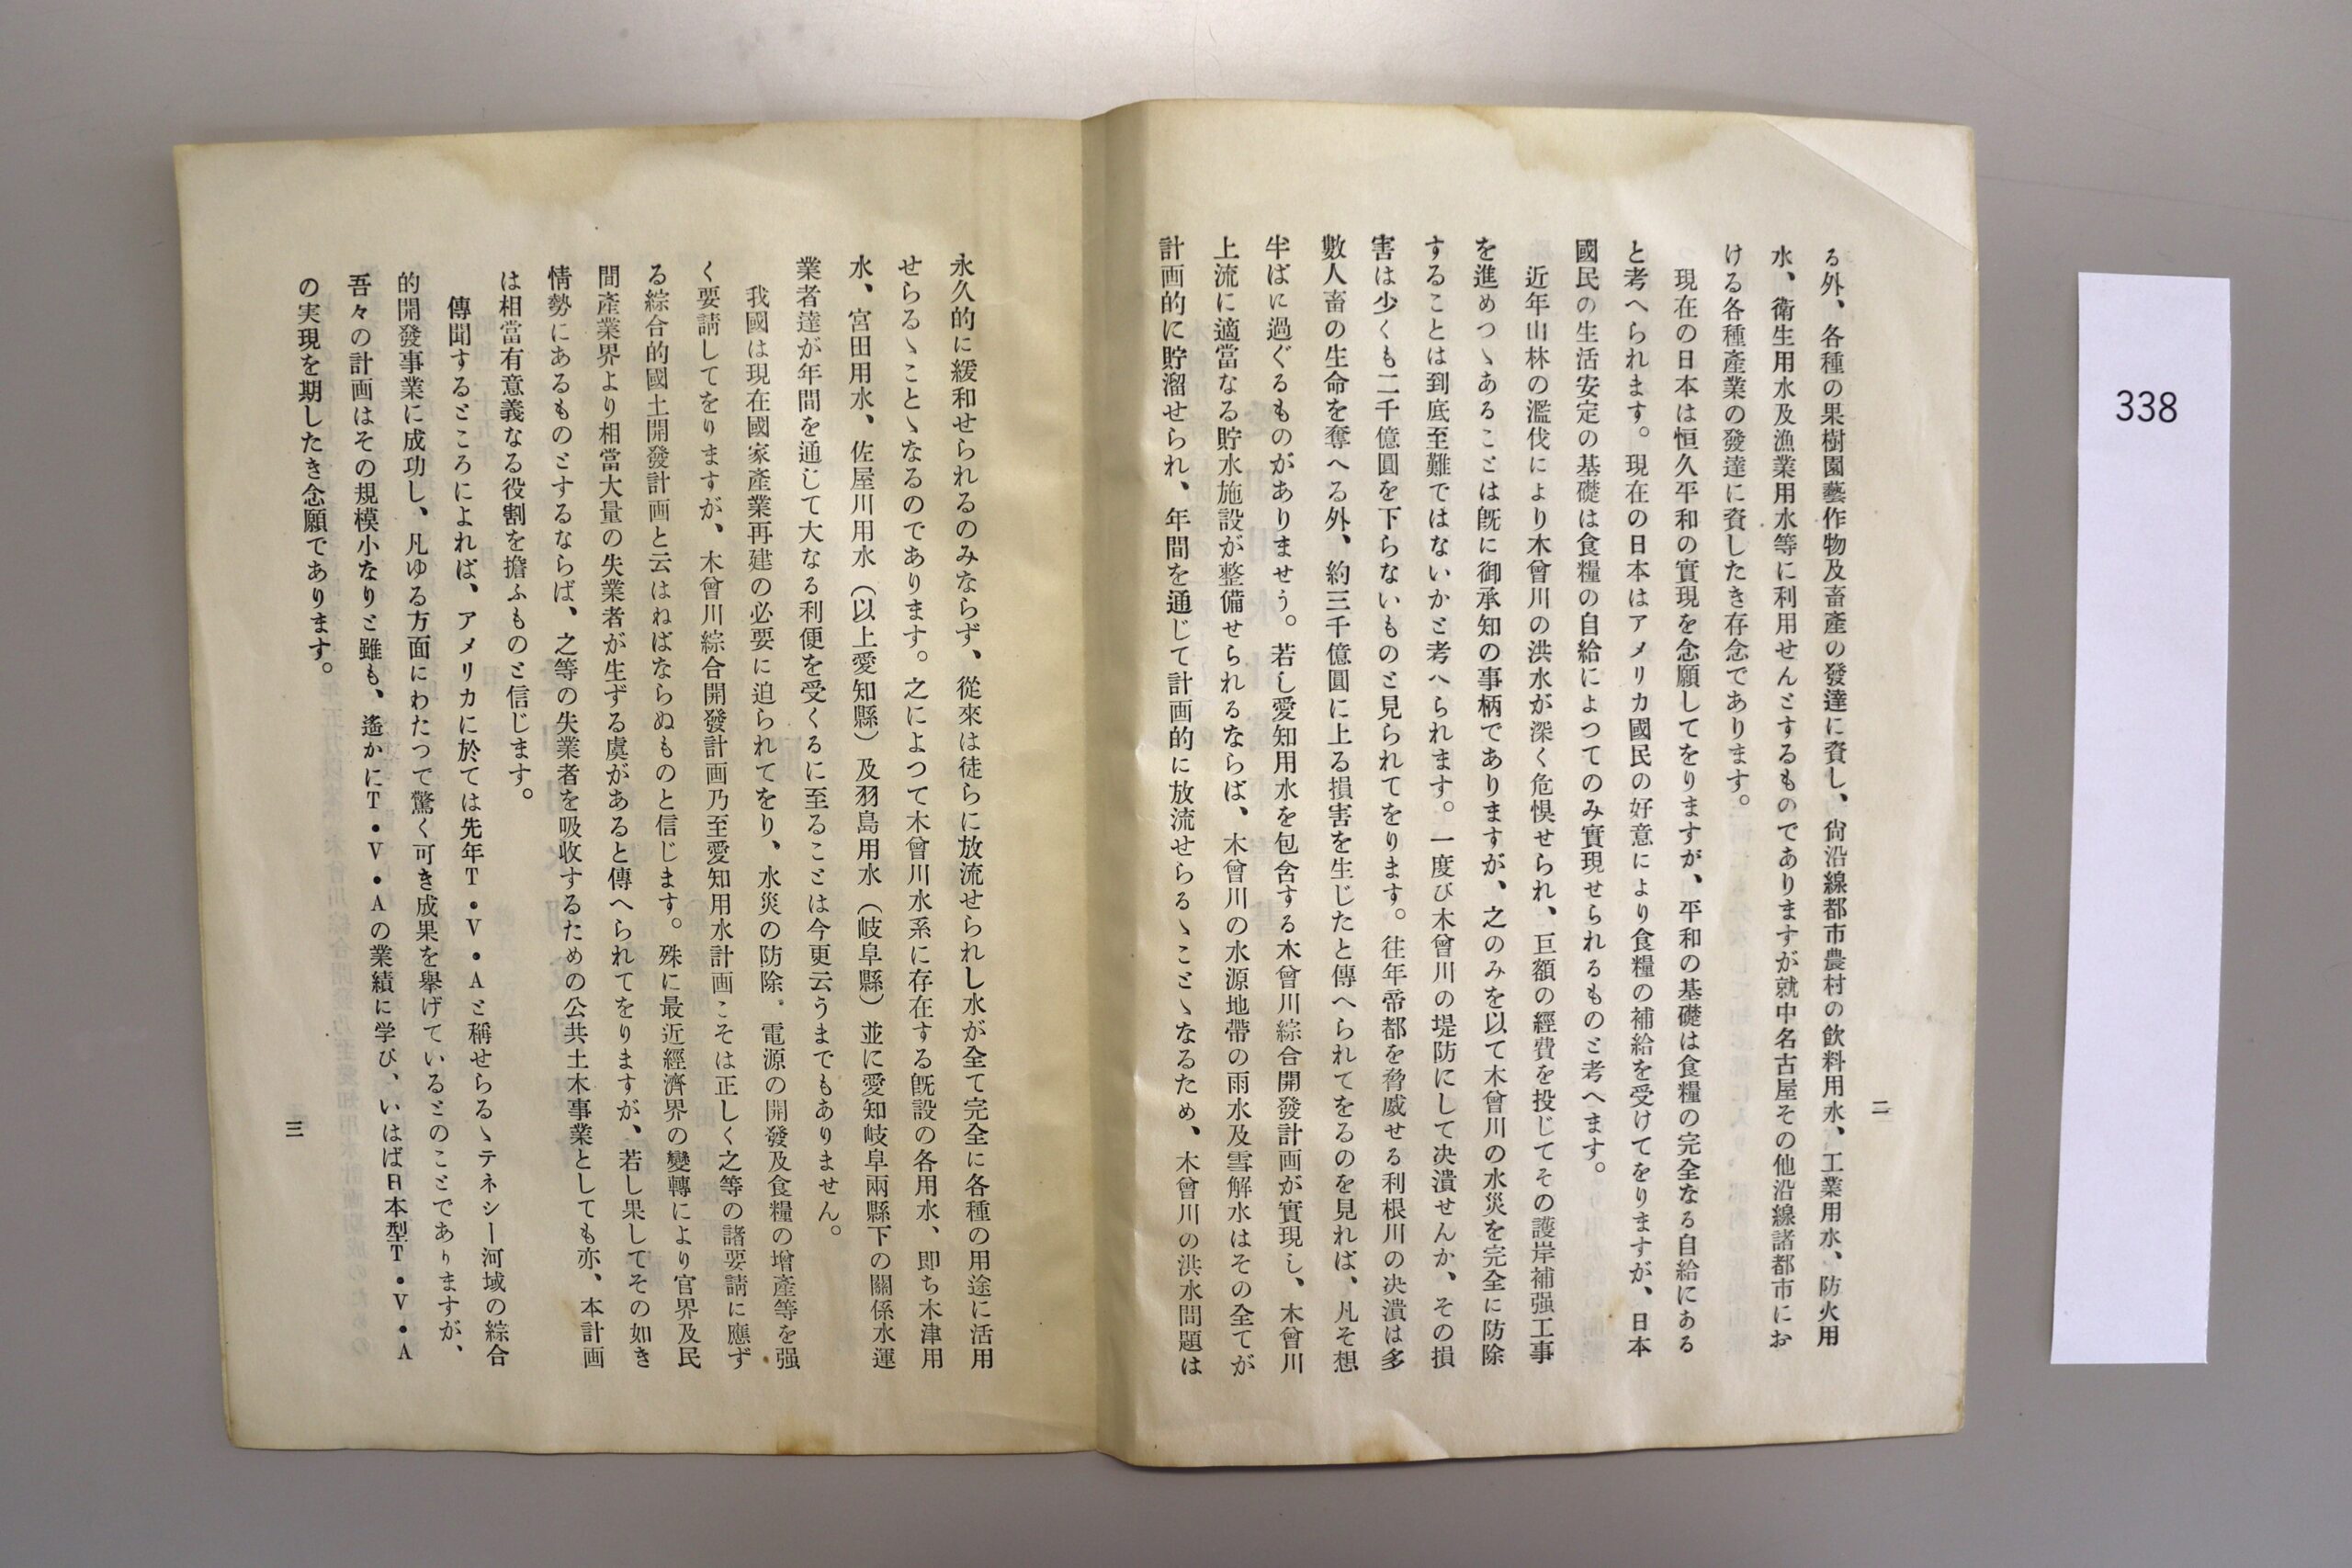 二
る外、各種の果樹園藝作物及畜產の發達に資し、尙沿線都市農村の飲料用水、工業用水、防火用
水、衛生用水及漁業用水等に利用せんとするものでありますが就中名古屋その他沿線諸都市にお
ける各種產業の發達に資したき存念であります。
現在の日本は恒久平和の實現を念願してをりますが、平和の基礎は食糧の完全なる自給にある
と考へられます。現在の日本はアメリカ國民の好意により食糧の補給を受けてをりますが、日本
國民の生活安定の基礎は食糧の自給によつてのみ實現せられるものと考へます。
近年山林の濫伐により木曾川の洪水が深く危惧せられ、巨額の經費を投じてその護岸補强工事
を進めつゝあることは旣に御承知の事柄でありますが、之のみを以て木曾川の水災を完全に防除
することは到底至難ではないかと考へられます。一度び木曾川の堤防にして決潰せんか、その損
害は少くも二千億圓を下らないものと見られてをります。往年帝都を脅威せる利根川の決潰は多
數人畜の生命を奪へる外、約三千億圓に上る損害を生じたと傳へられてをるのを見れば、凡そ想
半ばに過ぐるものがありませう。若し愛知用水を包含する木曾川綜合開發計画が實現し、木曾川
上流に適當なる貯水施設が整備せられるならば、木曾川の水源地帶の雨水及雪解水はその全てが
計画的に貯溜せられ、年間を通じて計画的に放流せらるゝことゝなるため、木曾川の洪水問題は
永久的に緩和せられるのみならず、從來は徒らに放流せられし水が全て完全に各種の用途に活用
せらるゝことゝなるのであります。之によつて木曾川水系に存在する旣設の各用水、即ち木津用
水、宮田用水、佐屋川用水（以上愛知縣）及羽島用水（岐阜縣）並に愛知岐阜兩縣下の關係水運
業者達が年間を通じて大なる利便を受くるに至ることは今更云うまでもありません。
我國は現在國家產業再建の必要に迫られてをり、水災の防除、電源の開發及食糧の增產等を强
く要請してをりますが、木曾川綜合開發計画乃至愛知用水計画こそは正しく之等の諸要請に應ず
る綜合的國土開發計画と云はねばならぬものと信じます。殊に最近經濟界の變轉により官界及民
間產業界より相當大量の失業者が生ずる虞があると傳へられてをりますが、若し果してその如き
情勢にあるものとするならば、之等の失業者を吸收するための公共土木事業としても亦、本計画
は相當有意義なる役割を擔ふものと信じます。
傳聞するところによれば、アメリカに於ては先年T・V・Aと稱せらるゝテネシー河域の綜合
的開發事業に成功し、凡ゆる方面にわたつて驚く可き成果を擧げているとのことでありますが、
吾々の計画はその規模小なりと雖も、遙かにT・V・Aの業績に学び、いはば日本型T・V・A
の実現を期したき念願であります。
三
338